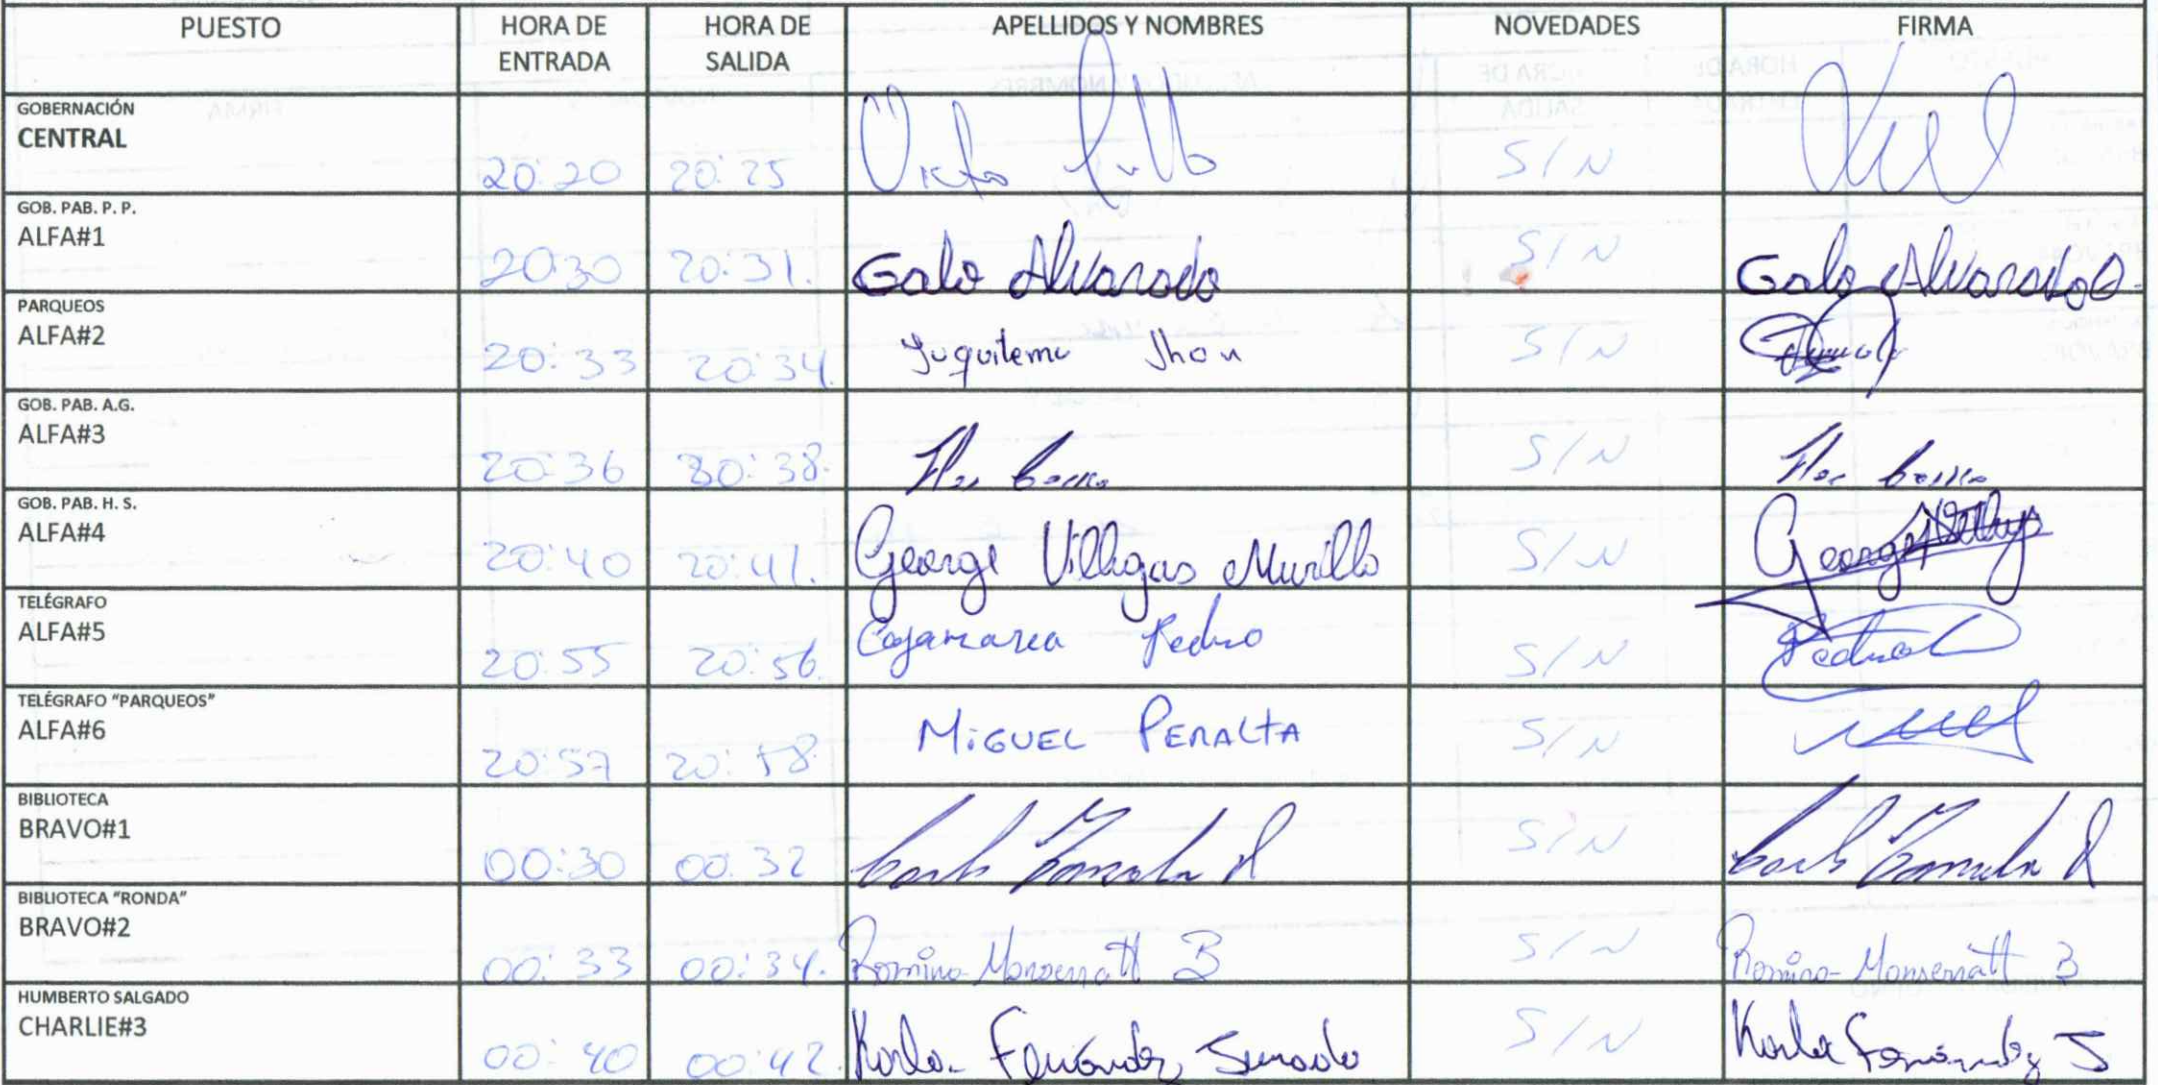 PUESTO HORA DE ENTRADA HORA DE SALIDA APELLIDOS Y NOMBRES NOVEDADES FIRMA
GOBERNACIÓN
CENTRAL 20:20 20:25 S/N
GOB. PAB. P. P.
ALFA#1 20:30 20:31. Galo Alvarado S/N Galo Alvarado
PARQUEOS
ALFA#2 20:33 20:34. Yuquilema Jhon S/N
GOB. PAB. A.G.
ALFA#3 20:36 20:38. S/N
GOB. PAB. H. S.
ALFA#4 20:40 20:41. George Villegas Murillo S/N George
TELÉGRAFO
ALFA#5 20:55 20:56. Cajamarca Pedro S/N Pedro
TELÉGRAFO "PARQUEOS"
ALFA#6 20:57 20:58. MIGUEL PERALTA S/N
BIBLIOTECA
BRAVO#1 00:30 00:32 S/N
BIBLIOTECA "RONDA"
BRAVO#2 00:33 00:34. Romina Monserratt B S/N Romina Monserratt B
HUMBERTO SALGADO
CHARLIE#3 00:40 00:42. Karla Fernández S/N Karla Fernández S